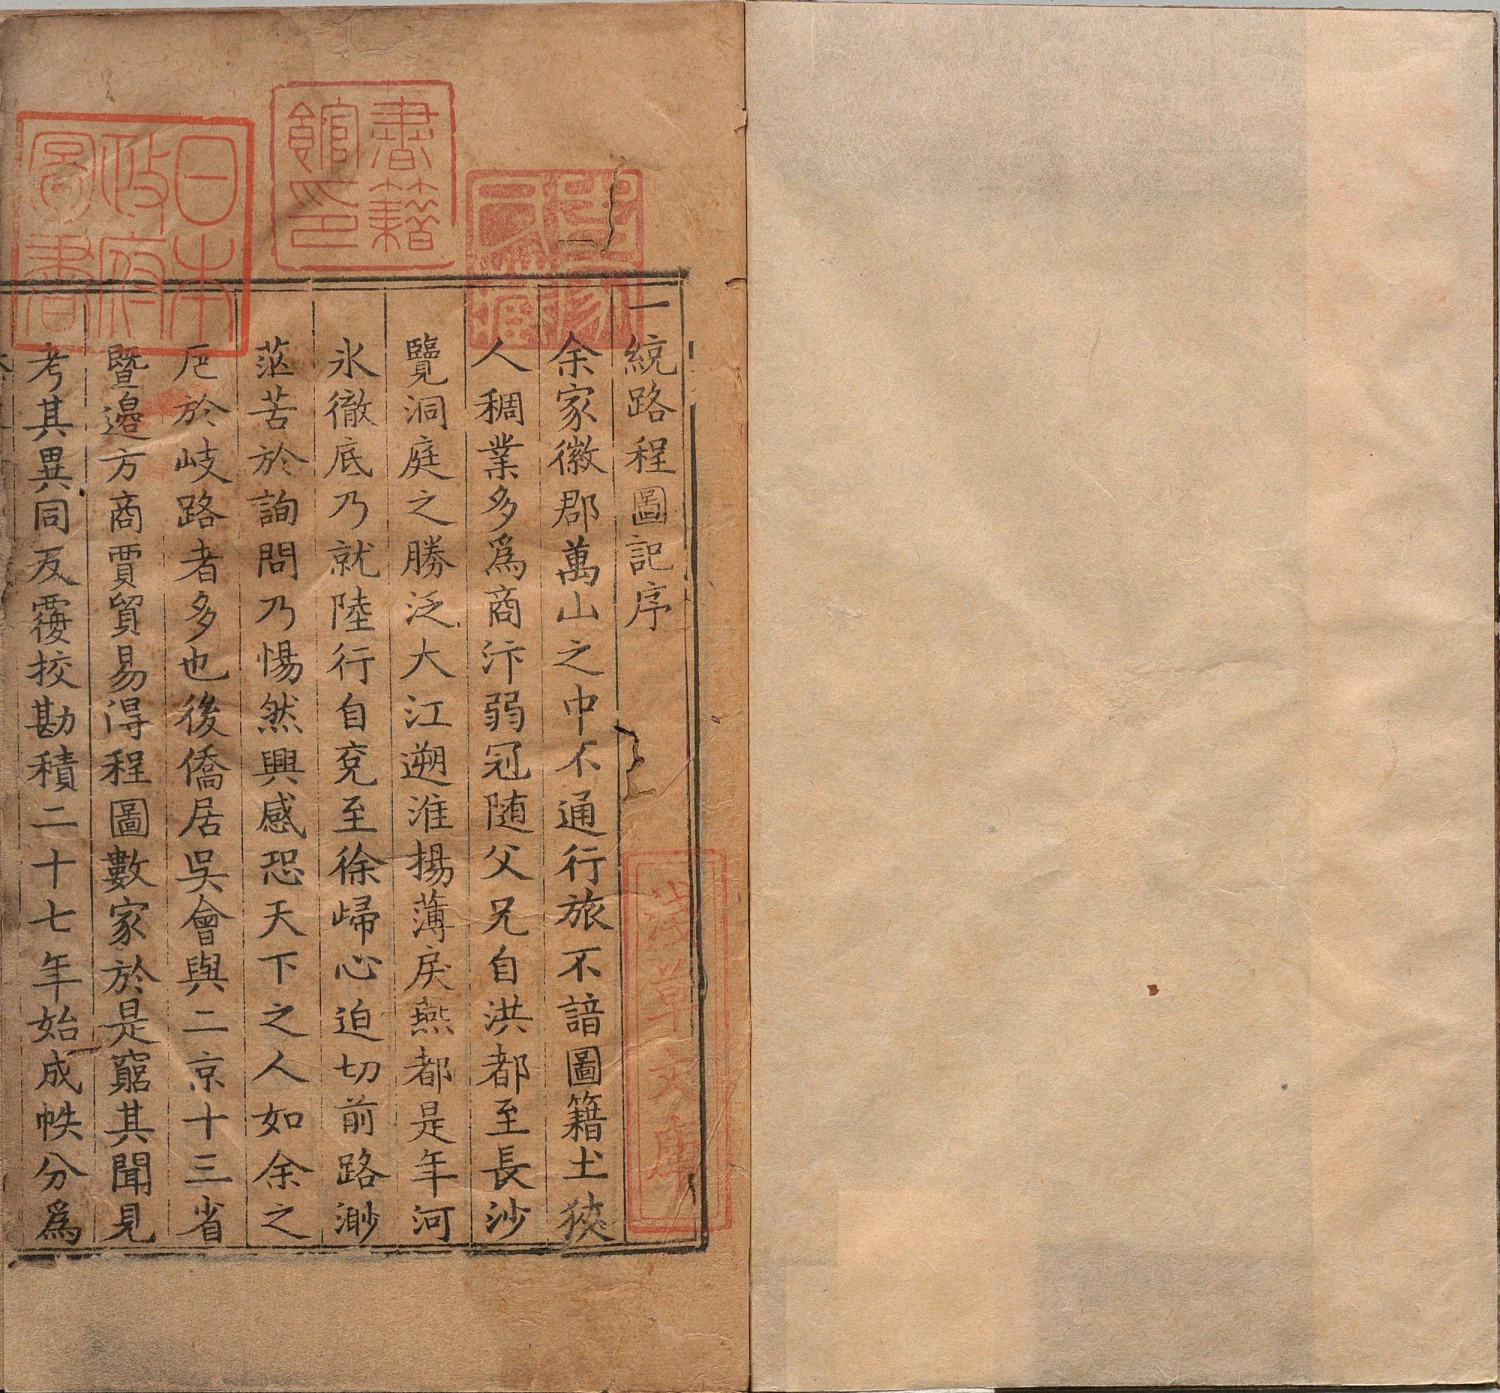 一統路程圖記序
余家徽郡萬山之中不通行旅不諳圖籍土狹
人稠業多爲商汴弱冠随父兄自洪都至長沙
覽洞庭之勝泛大江遡淮揚薄戾燕都是年河
氷徹底乃就陸行自兗至徐歸心迫切前路渺
茫苦於詢問乃惕然興感恐天下之人如余之
厄於岐路者多也後僑居吳會與二京十三省
暨邉方商賈貿易得程圖數家於是窮其聞見
考其異同反覆挍勘積二十七年始成帙分爲
淺草文庫
書籍館印
日本政府圖書